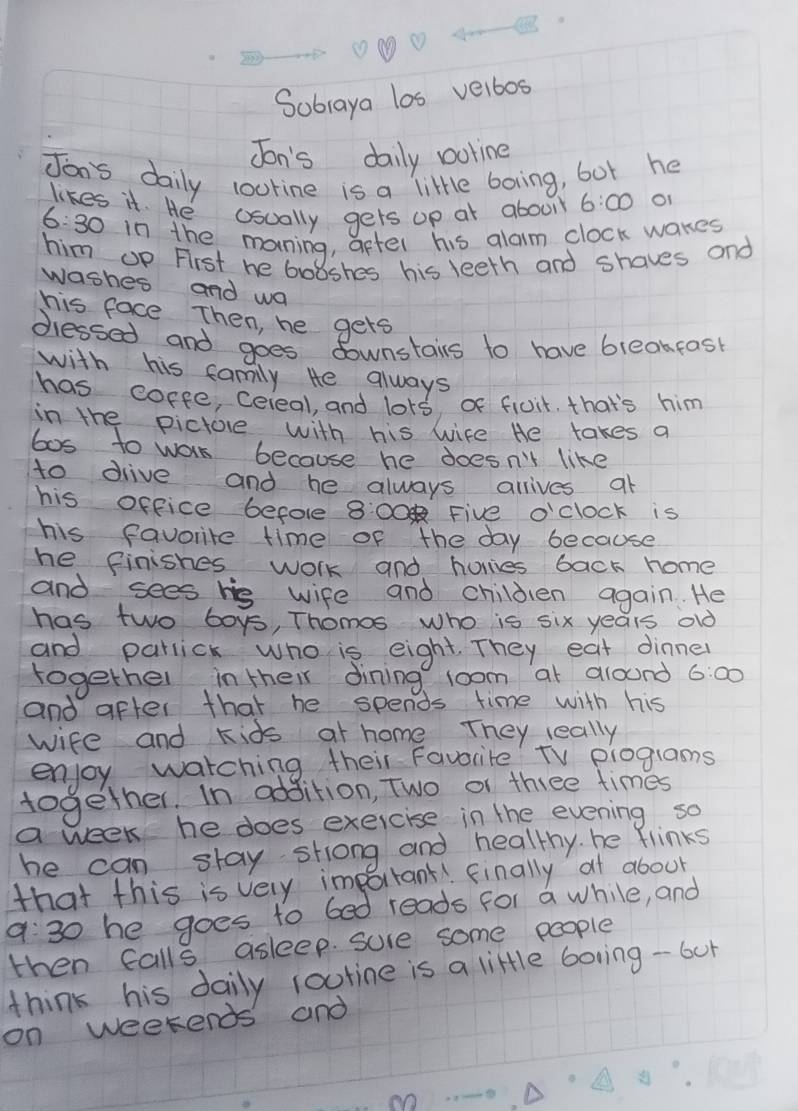 Subraya los verbos
Jon's daily routine
Jon's daily routine is a little boring, but he
likes it. He usually gets up at about 6:00 or
6:30 in the morning, after his alarm clock wakes
him up First he brooshes his teeth and shaves and
washes and wa
his face Then, he gets
dressed and goes downstairs to have breakfast
with his family He always
has coffe, cereal, and lots of fruit. that's him
in the picture with his wife He takes a
bus to work because he doesn't like
to drive and he always arrives at
his office before 8:00 Five o'clock is
his favorite time of the day because
he finishes work and hurries back home
and sees his wife and children again. He
has two boys, Thomas who is six years old
and patrick who is eight. They eat dinner
together in their dining room at around 6:00
and after that he spends time with his
wife and kids at home They really
enjoy watching their Favorite TV programs
together. In addition, Two or three times
a week he does exercise in the evening so
he can stay strong and healthy. he tlinks
that this is very important! finally at about
9:30 he goes to bed reads for a while, and
then falls asleep. sure some people
think his daily routine is a little boring - but
on weekends and